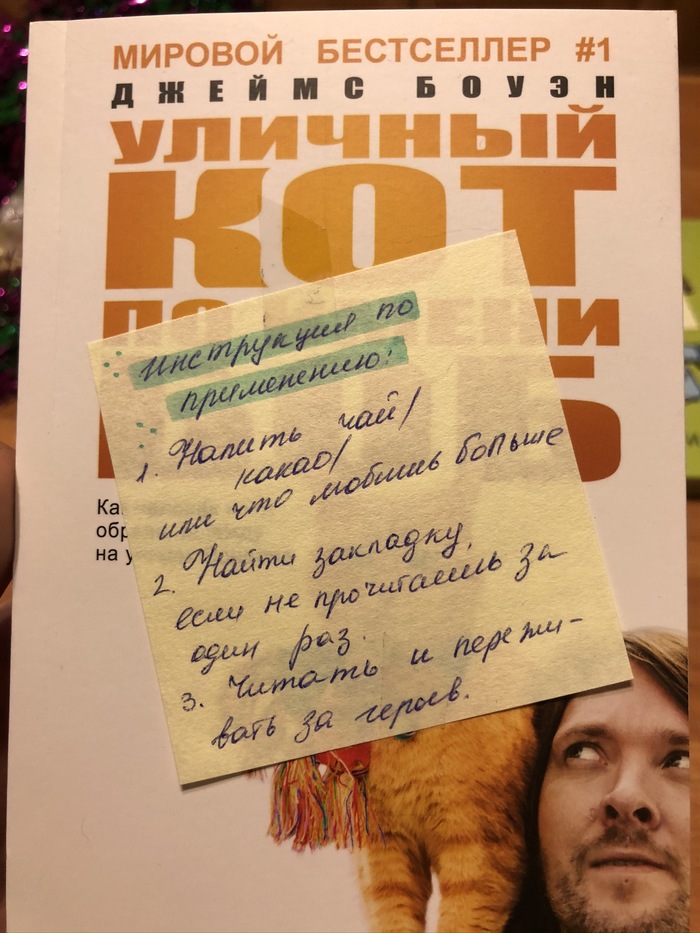 МИРОВОЙ БЕСТСЕЛЛЕР #1
ДЖЕЙМС БОУЭН
УЛИЧНЫЙ
КОТ
Инструкция по
применению:
1. Налить чай/
какао/
или что любишь больше
2. Найти закладку,
если не прочитаешь за
один раз.
3. Читать и пережи-
вать за героев.
на у